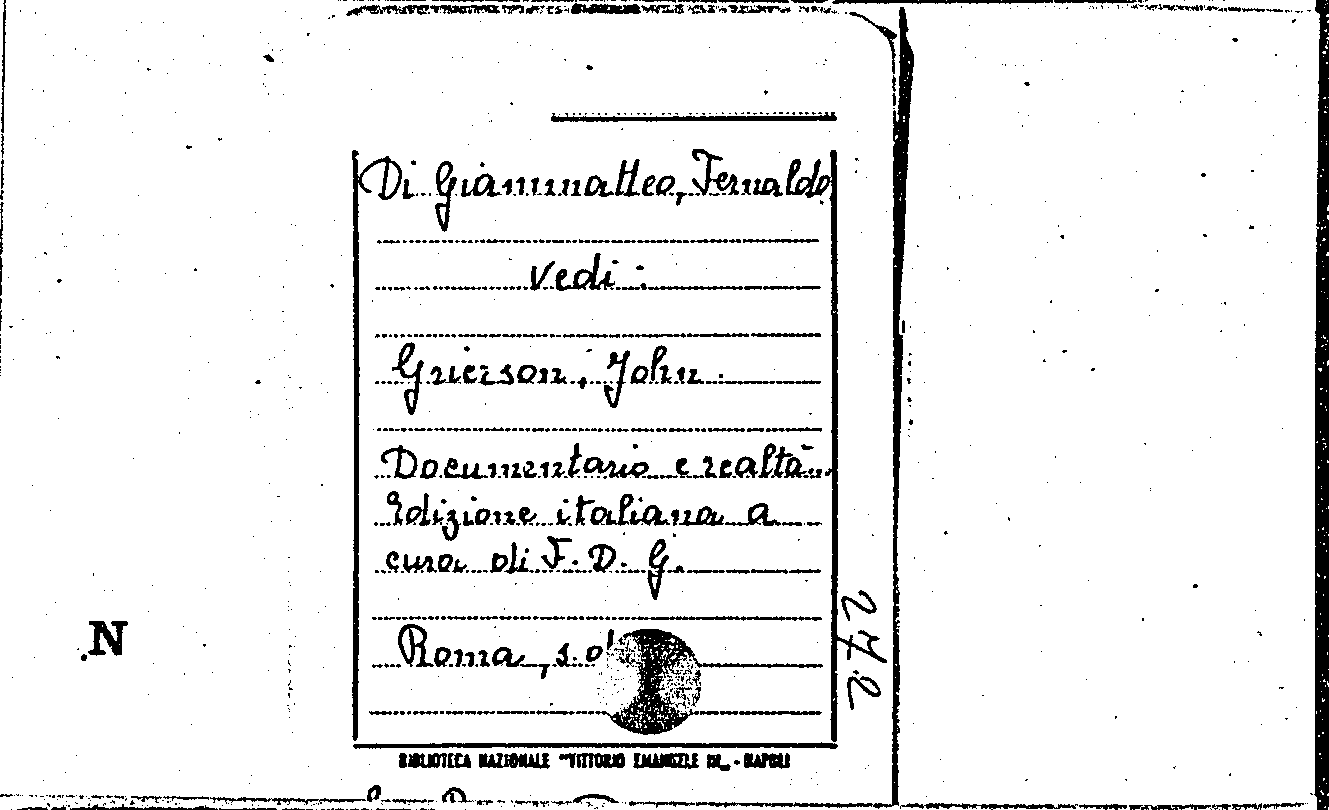 Di Giammatteo, Fernaldo
vedi:
Grierson, John.
Documentario e realtà.
Edizione italiana a
cura di F. D. G.
Roma, s.d
N
27.2
BIBLIOTECA NAZIONALE "VITTORIO EMANUELE III" - NAPOLI